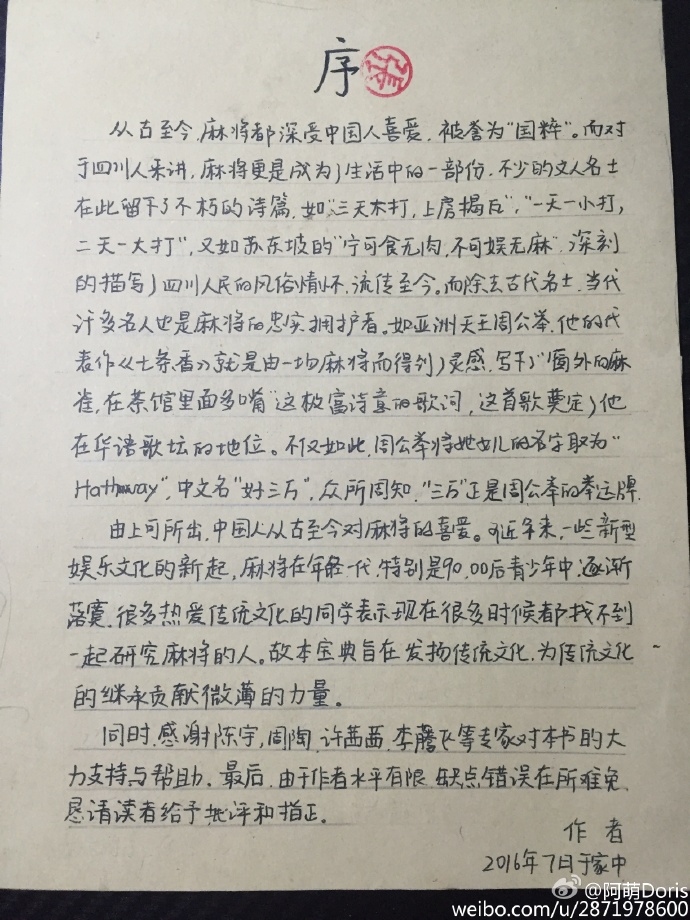 序
从古至今,麻将都深受中国人喜爱,被誉为"国粹"。而对
于四川人来讲,麻将更是成为了生活中的一部份,不少的文人名士
在此留下了不朽的诗篇,如"三天不打,上房揭瓦","一天一小打,
二天一大打",又如苏东坡的"宁可食无肉,不可娱无麻",深刻
的描写了四川人民的风俗情怀,流传至今。而除去古代名士,当代
许多名人也是麻将的忠实拥护者。如亚洲天王周公举,他的代
表作《七条香》就是由一场麻将而得到了灵感,写下了"窗外的麻
雀,在茶馆里面多嘴"这极富诗意的歌词,这首歌奠定了他
在华语歌坛的地位。不仅如此,周公举将她女儿的名字取为"
Hathaway",中文名"好三万",众所周知,"三万"正是周公举的幸运牌.
由上可所出,中国人从古至今对麻将的喜爱。近年来,一些新型
娱乐文化的新起,麻将在年轻一代,特别是90,00后青少年中,逐渐
落寞,很多热爱传统文化的同学表示现在很多时候都找不到
一起研究麻将的人。故本宝典旨在发扬传统文化,为传统文化
的继承贡献微薄的力量。
同时,感谢陈宇,周陶,许茜茜,李腾飞等专家对本书的大
力支持与帮助。最后,由于作者水平有限,缺点错误在所难免,
恳请读者给予批评和指正。
作者
2016年7日于家中
@阿萌Doris
weibo.com/u/2871978600